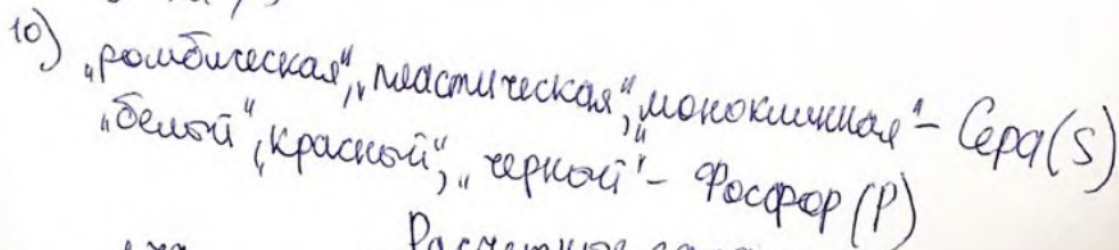 10) „ромбическая", „пластическая", „моноклинная" – Сера (S)
„белой", „красный", „черной" – Фосфор (P)
Расчетные